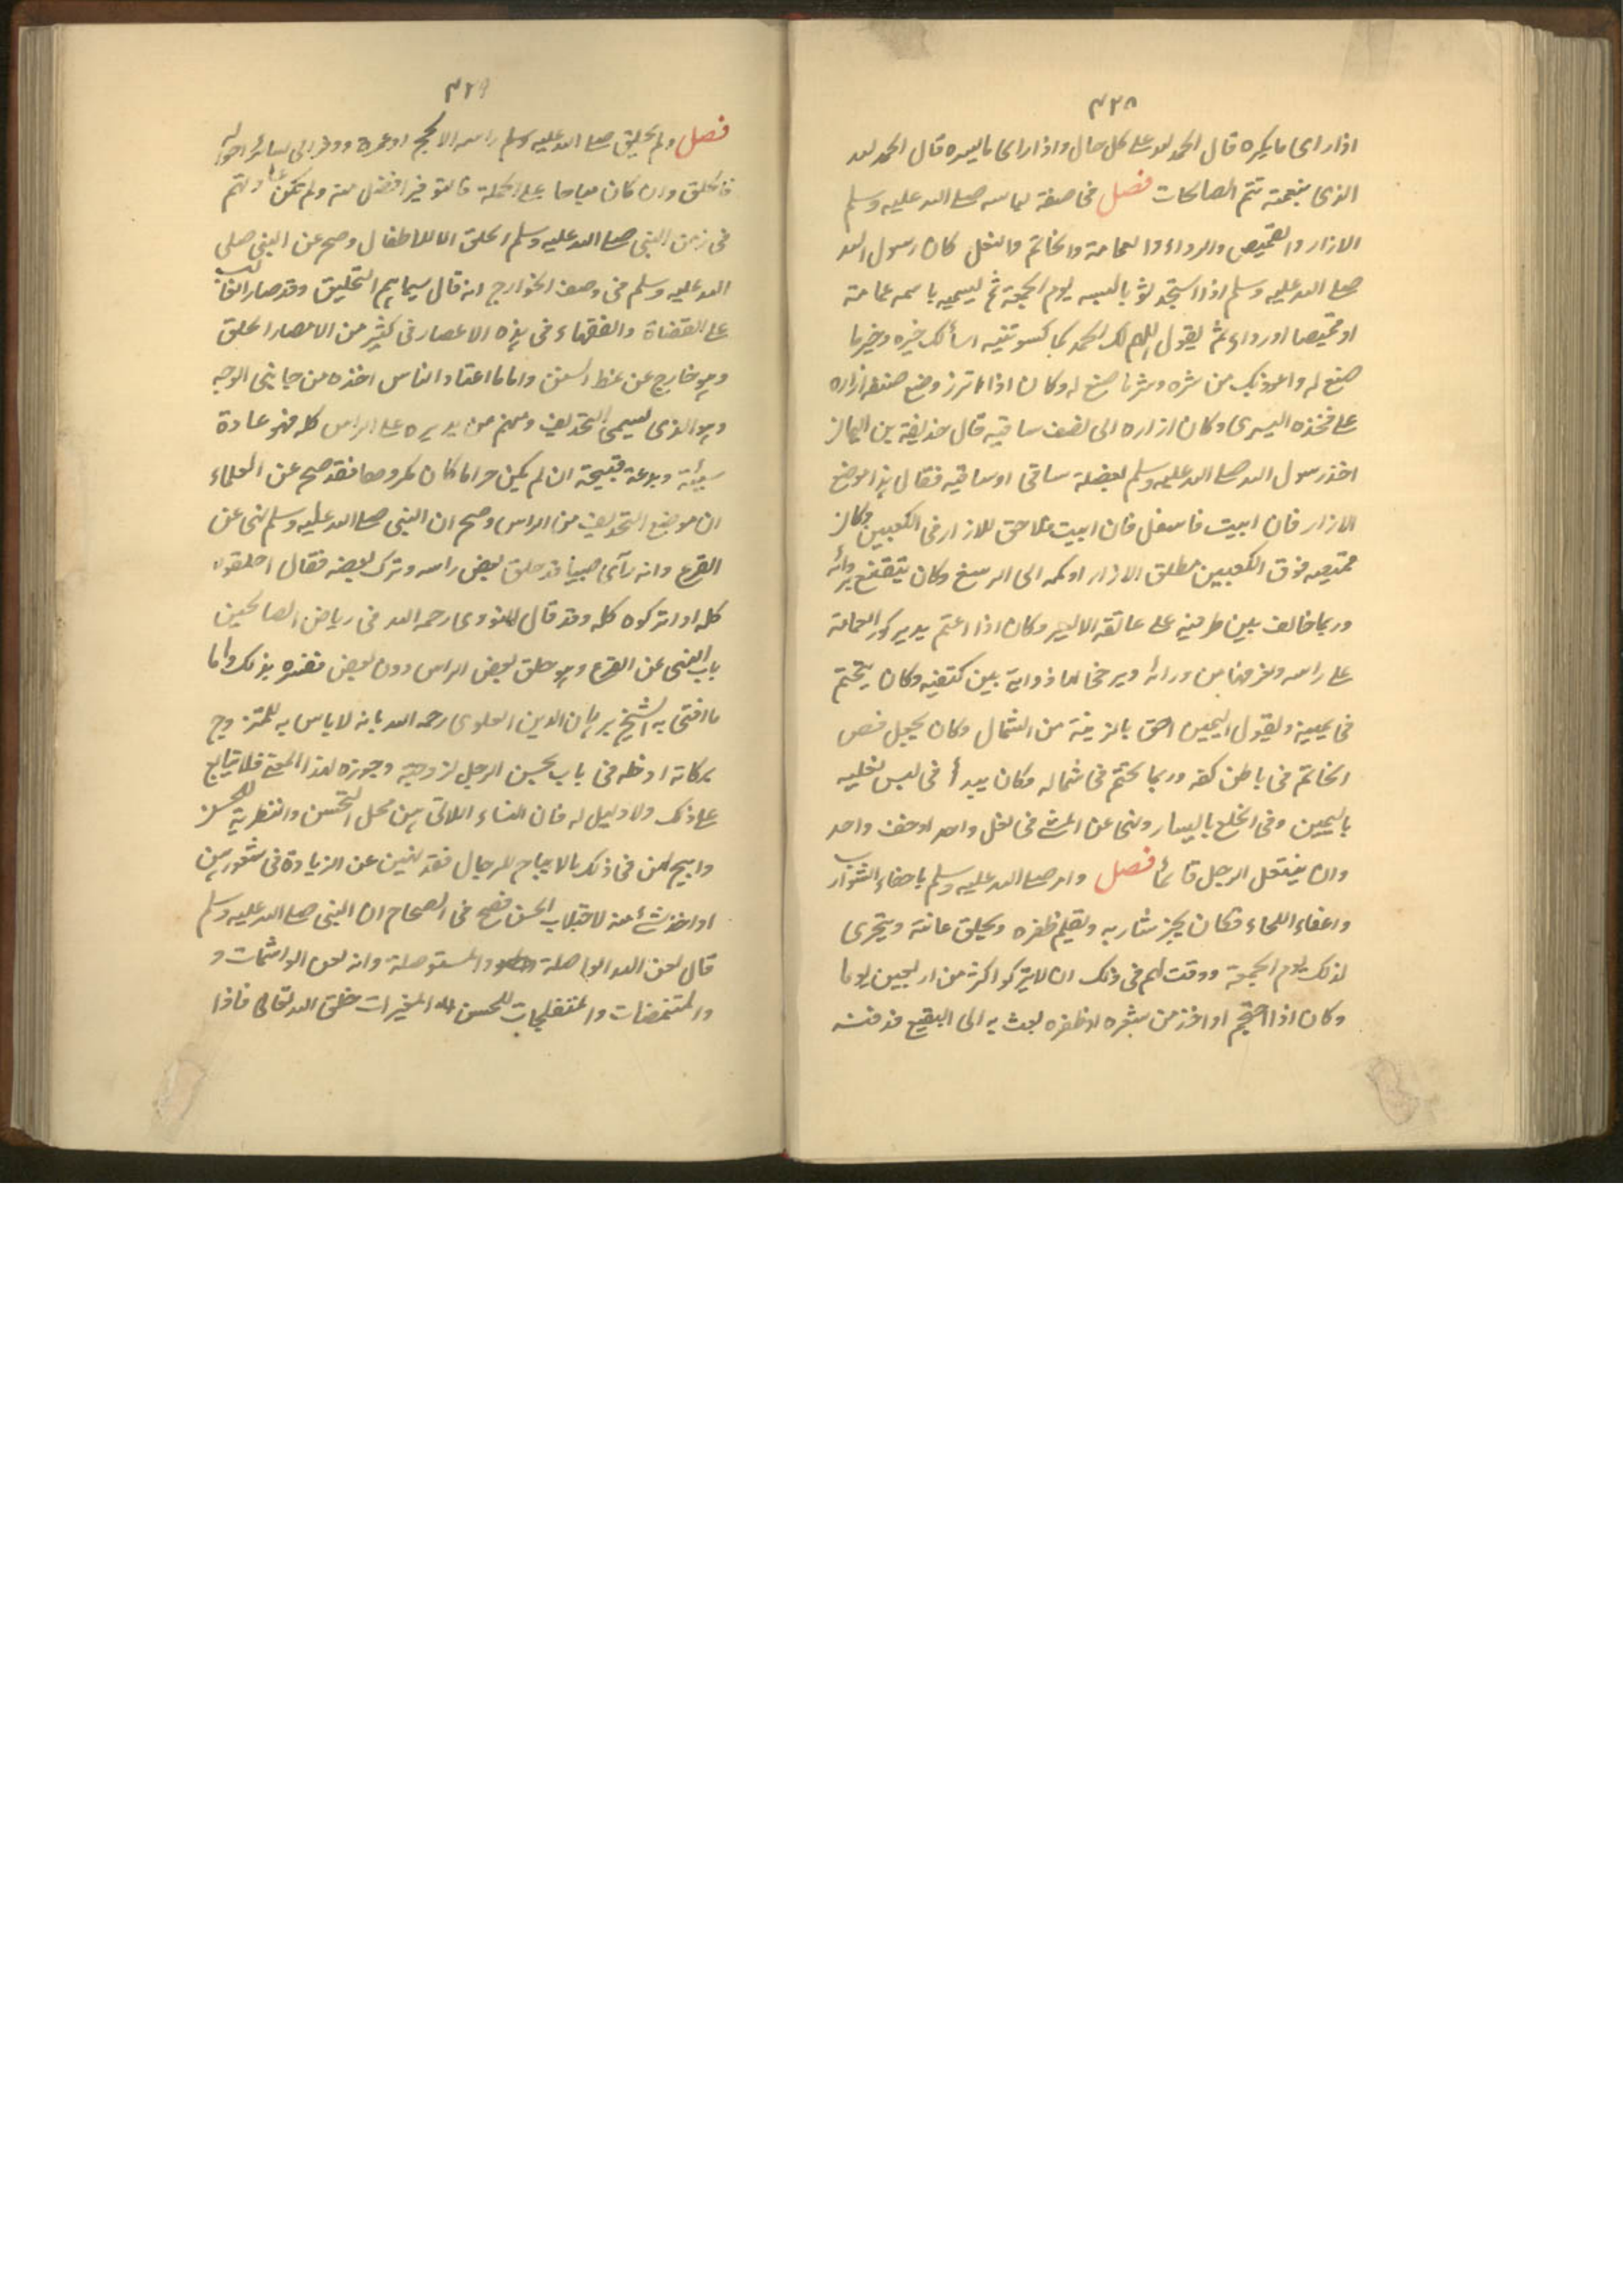 ٤٢٨
اذا راى ما يكره قال الحمد لله على كل حال واذا راى ما يسره قال الحمد لله
الذى بنعمته تتم الصالحات فصل فى صفة لباسه صلى الله عليه وسلم
الازار والقميص والرداء والعمامة والخاتم والنعل كان رسول الله
صلى الله عليه وسلم اذا استجد ثوبا لبسه يوم الجمعة ثم يسميه باسمه عمامة
او قميصا او رداء ثم يقول اللهم لك الحمد كما كسوتنيه اسألك خيره وخير ما
صنع له واعوذ بك من شره وشر ما صنع له وكان اذا اتزر وضع صنفة ازاره
على فخذه اليسرى وكان ازاره الى نصف ساقيه قال حذيفة بن اليمان
اخذ رسول الله صلى الله عليه وسلم بعضلة ساقى او ساقيه فقال هذا موضع
الازار فان ابيت فاسفل فان ابيت فلا حق للازار فى الكعبين وكان
قميصه فوق الكعبين مطلق الازرار وكمه الى الرسغ وكان يتقنع بردائه
وربما خالف بين طرفيه على عاتقه الايسر وكان اذا اعتم يدير كور العمامة
على راسه ويغرزها من ورائه ويرخى لها ذوابة بين كتفيه وكان يتختم
فى يمينه ويقول اليمين احق بالزينة من الشمال وكان يجعل فص
الخاتم فى باطن كفه وربما تختم فى شماله وكان يبدأ فى لبس نعليه
باليمين وفى الخلع باليسار ونهى عن المشى فى نعل واحد او خف واحد
وان ينتعل الرجل قائما فصل وامر صلى الله عليه وسلم باحفاء الشوارب
واعفاء اللحاء وكان يجز شاربه ويقلم ظفره ويحلق عانته ويتحرى
لذلك يوم الجمعة ووقت لهم فى ذلك ان لا يتركوا اكثر من اربعين يوما
وكان اذا احتجم او اخذ من شعره او ظفره بعث به الى البقيع فدفنه
٤٢٩
فصل ولم يحلق صلى الله عليه وسلم راسه الا لحج او عمرة ووفر الى سائر احواله
فالحلق وان كان مباحا على الجملة فالتوفير افضل منه ولم تكن
فى زمن النبى صلى الله عليه وسلم الحلق الا للاطفال وصح عن النبى صلى
الله عليه وسلم فى وصف الخوارج انه قال سيماهم التحليق وقد صار الغالب
على القضاة والفقهاء فى هذه الاعصار فى كثير من الامصار الحلق
وهو خارج عن نمط السنن واما ما اعتاد الناس اخذه من جانبى الوجه
وهو الذى يسمى التحذيف ومنهم من يديره على الراس كله فهو عادة
سيئة وبدعة قبيحة ان لم يكن حراما كان مكروها فقد صح عن العلماء
ان موضع التحذيف من الراس وصح ان النبى صلى الله عليه وسلم نهى عن
القزع وانه رآى صبيا قد حلق بعض راسه وترك بعضه فقال احلقوه
كله او اتركوه كله وقد قال النووى رحمه الله فى رياض الصالحين
باب النهى عن القزع وهو حلق بعض الراس دون بعض فغره بذلك واما
ما افتى به الشيخ برهان الدين العلوى رحمه الله بانه لا باس به للمتزوج
بكانه ادخله فى باب تحسين الرجل لزوجته وجوزه لهذا المعنى فلا يتابع
على ذلك ولا دليل له فان النساء اللاتى هن محل التحسن والتطرية للحسن
وابيح لهن فى ذلك ما لا يباح للرجال فقد نهين عن الزيادة فى شعورهن
او اخذ شئ منه لاجتلاب الحسن فصح فى الصحاح ان النبى صلى الله عليه وسلم
قال لعن الله الواصلة والمستوصلة وانه لعن الواشمات و
والمتنمصات والمتفلجات للحسن المغيرات خلق الله تعالى فاذا